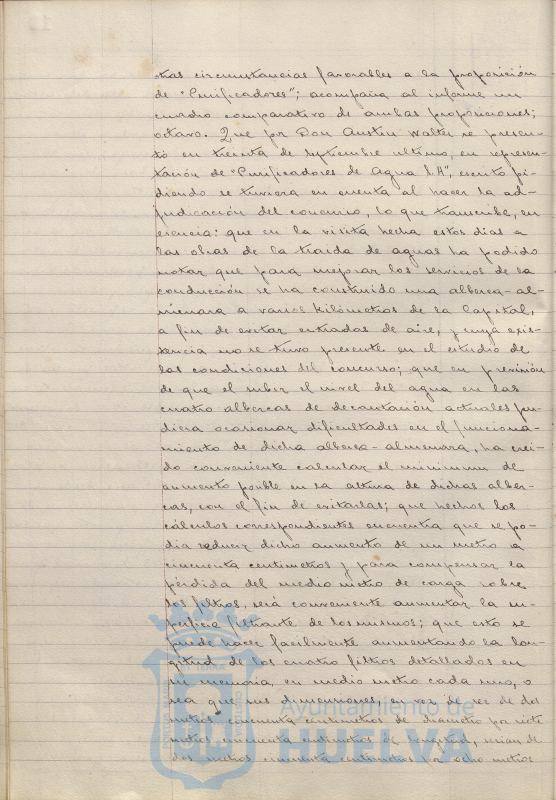 tras circunstancias favorables a la proposición
de "Purificadores"; acompaña al informe un
cuadro comparativo de ambas proposiciones;
octavo. Que por Don Austin Walter se presen-
tó en treinta de septiembre último, en represen-
tación de "Purificadores de Agua S.A", escrito pi-
diendo se tuviera en cuenta al hacer la ad-
judicación del concurso, lo que transcribe, en
esencia: que en la visita hecha estos dias a
las obras de la traida de aguas ha podido
notar que para mejorar los servicios de la
conducción se ha construido una alberca-al-
menara a varios kilómetros de la Capital,
a fin de evitar entradas de aire, y cuya exis-
tencia no se tuvo presente en el estudio de
las condiciones del concurso; que en previsión
de que el subir el nivel del agua en las
cuatro albercas de decantación actuales pu-
diera ocasionar dificultades en el funciona-
miento de dicha alberca-almenara, ha crei-
do conveniente calcular el minimum de
aumento posible en la altura de dichas alber-
cas, con el fin de evitarlas; que hechos los
cálculos correspondientes encuentra que se po-
dia reducir dicho aumento de un metro a
cincuenta centimetros y para compensar la
pérdida del medio metro de carga sobre
los filtros, será conveniente aumentar la su-
perficie filtrante de los mismos; que esto se
puede hacer facilmente aumentando la lon-
gitud de los cuatro filtros detallados en
su memoria, en medio metro cada uno, o
sea que sus dimensiones, en vez de ser de dos
metros cincuenta centimetros de diametro por siete
metros cincuenta centimetros de longitud, serian de
dos metros cincuenta centimetros por ocho metros
Ayuntamiento de
HUELVA